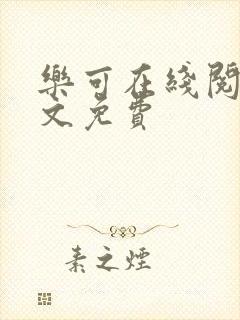 樂可在綫閱
文免費
素之煙